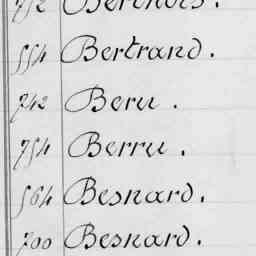 752 Berthois.
554 Bertrand.
742 Beru.
754 Berru.
564 Besnard.
700 Besnard.